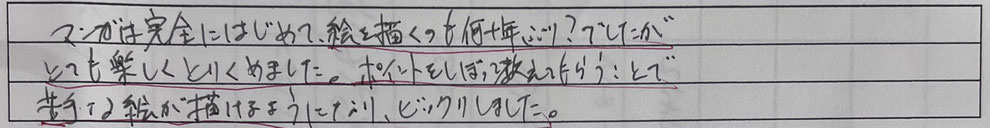 マンガは完全にはじめて、絵を描くのも何十年ぶり？でしたが
とても楽しくとりくめました。ポイントをしぼって教えてもらうことで
苦手な絵が描けるようになり、ビックリしました。